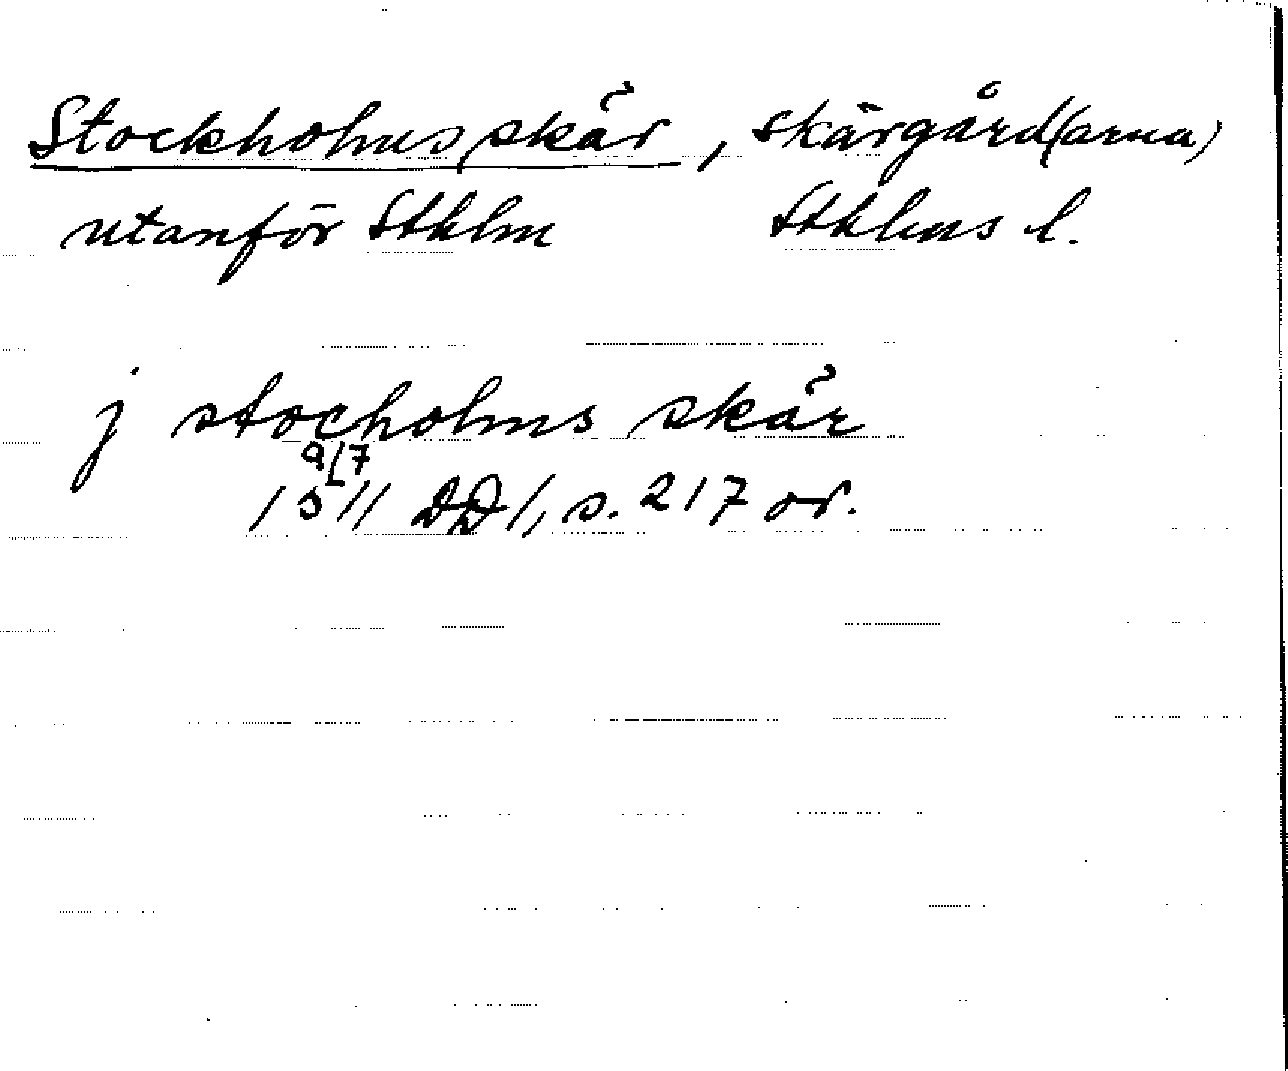 Stockholms skär, skärgård(arna)
utanför Sthlm Sthlms l.
j stocholms skär
9/7
1511 DD1, s. 217 or.